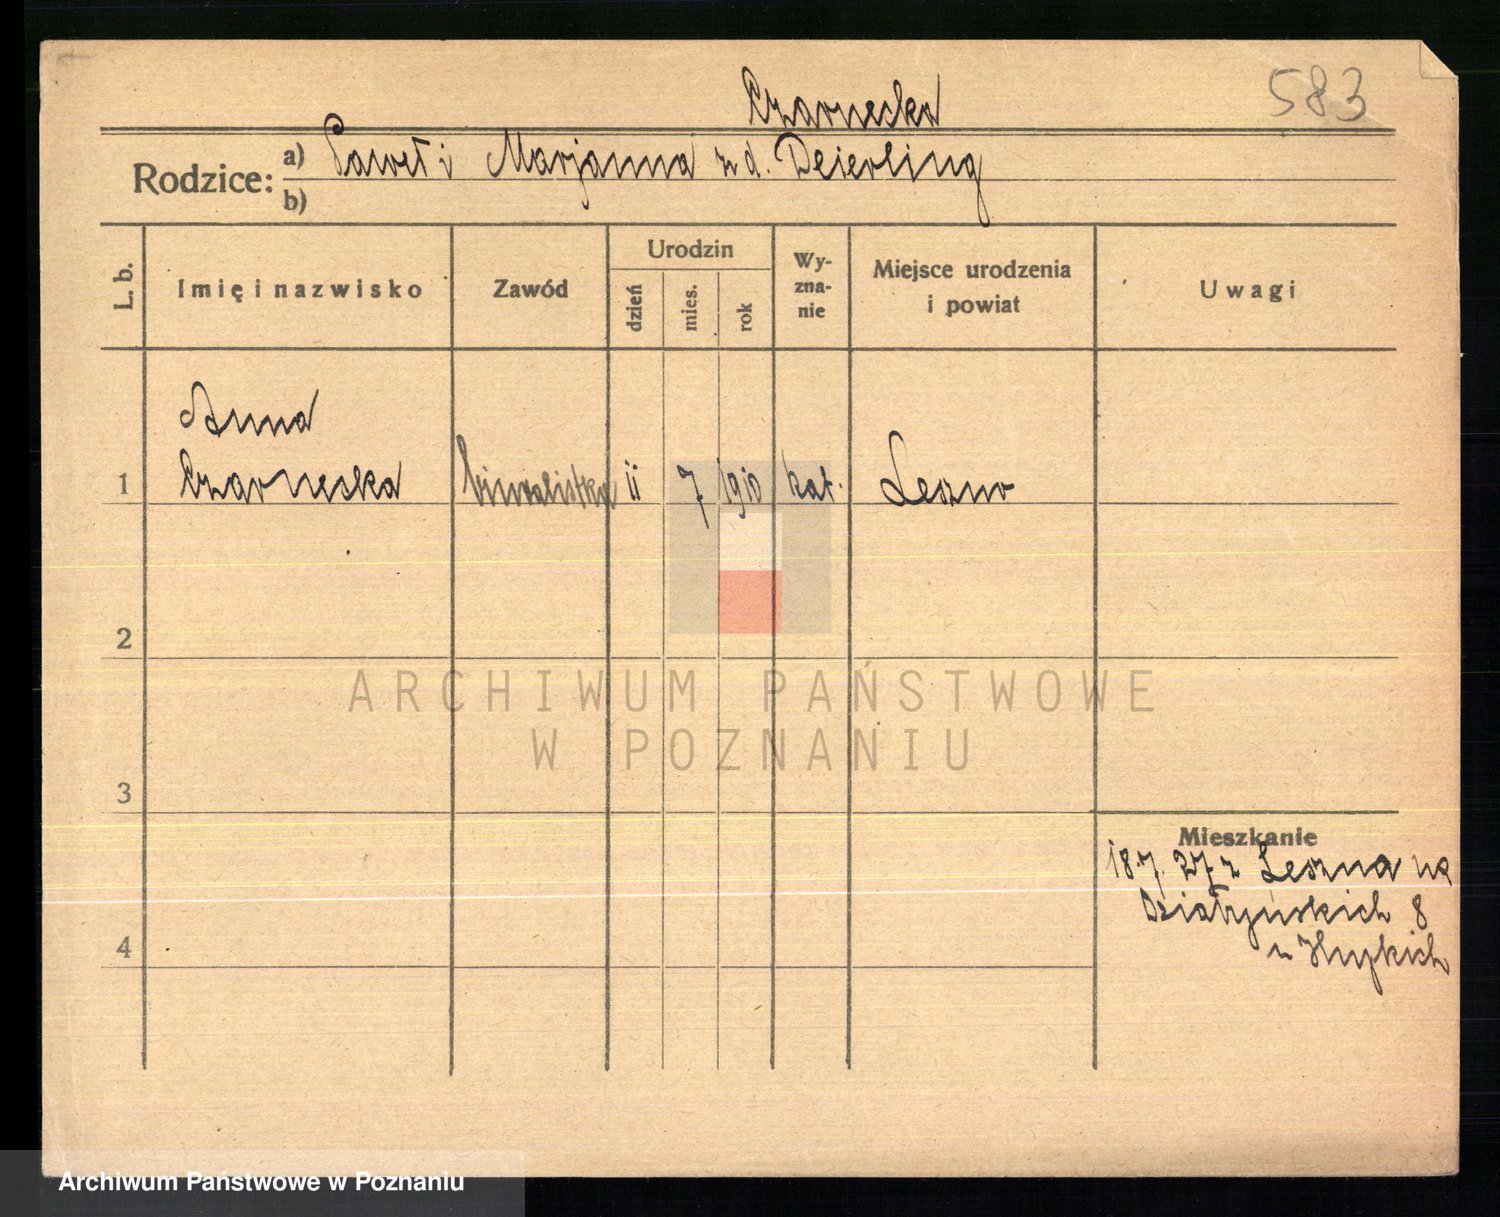 583
Czarnecka
Rodzice: a) Paweł i Marjanna z d. Deierling
b)
L. b.
Imię i nazwisko
Zawód
Urodzin
dzień
mies.
rok
Wy-
zna-
nie
Miejsce urodzenia
i powiat
Uwagi
Anna
1 Czarnecka biuralistka 11 7 1910 kat. Leszno
2
3
4
Mieszkanie
18.7. 27 z Leszna na
Działyńskich 8
ARCHIWUM PAŃSTWOWE
W POZNANIU
Archiwum Państwowe w Poznaniu